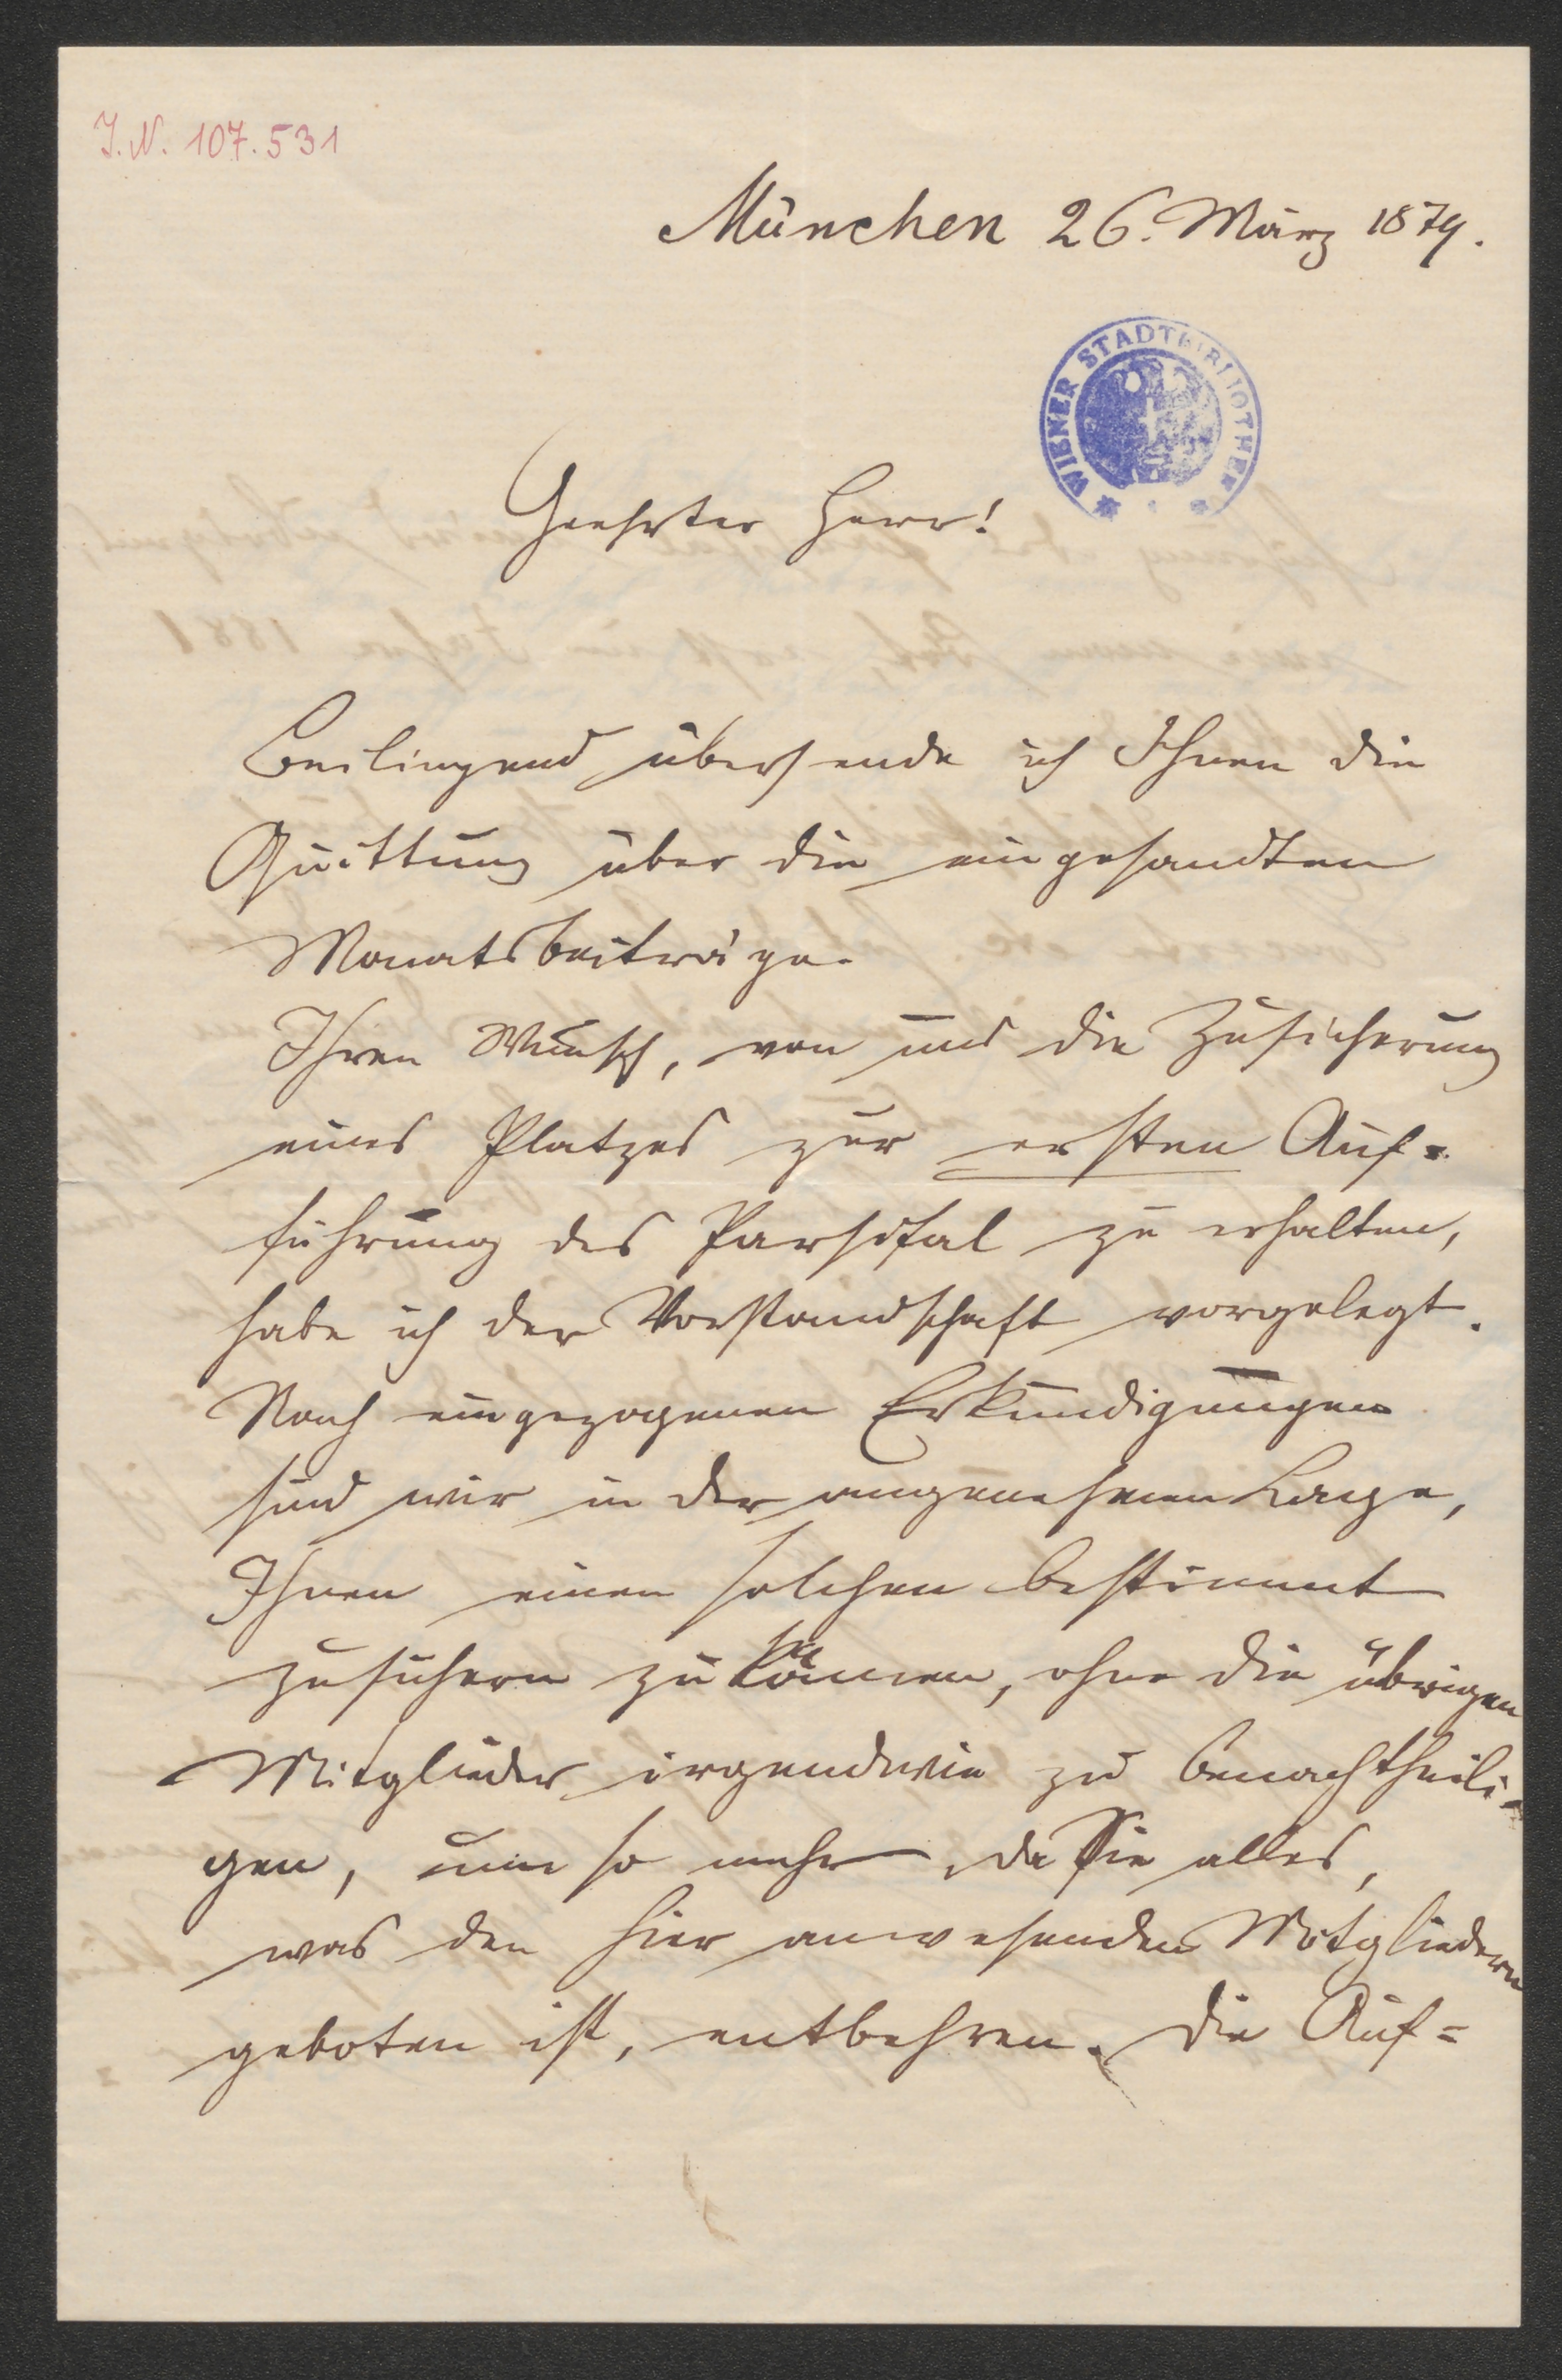 J.N. 107.531
München 26. März 1879.
WIENER STADTBIBLIOTHEK
Geehrter Herr!
Beiliegend übersende ich Ihnen die
Quittung über die eingesandten
Monatsbeiträge.
Ihren Wunsch, von uns die Zusicherung
eines Platzes zur ersten Auf=
führung des Parsifal zu erhalten,
habe ich der Vorstandschaft vorgelegt.
Nach eingezogenen Erkundigungen
sind wir in der angenehmen Lage,
Ihnen einen solchen bestimmt
zusichern zu können, ohne die übrigen
Mitglieder irgendwie zu benachtheili=
gen, um so mehr, da Sie alles,
was den hier anwesenden Mitgliedern
geboten ist, entbehren. Die Auf=